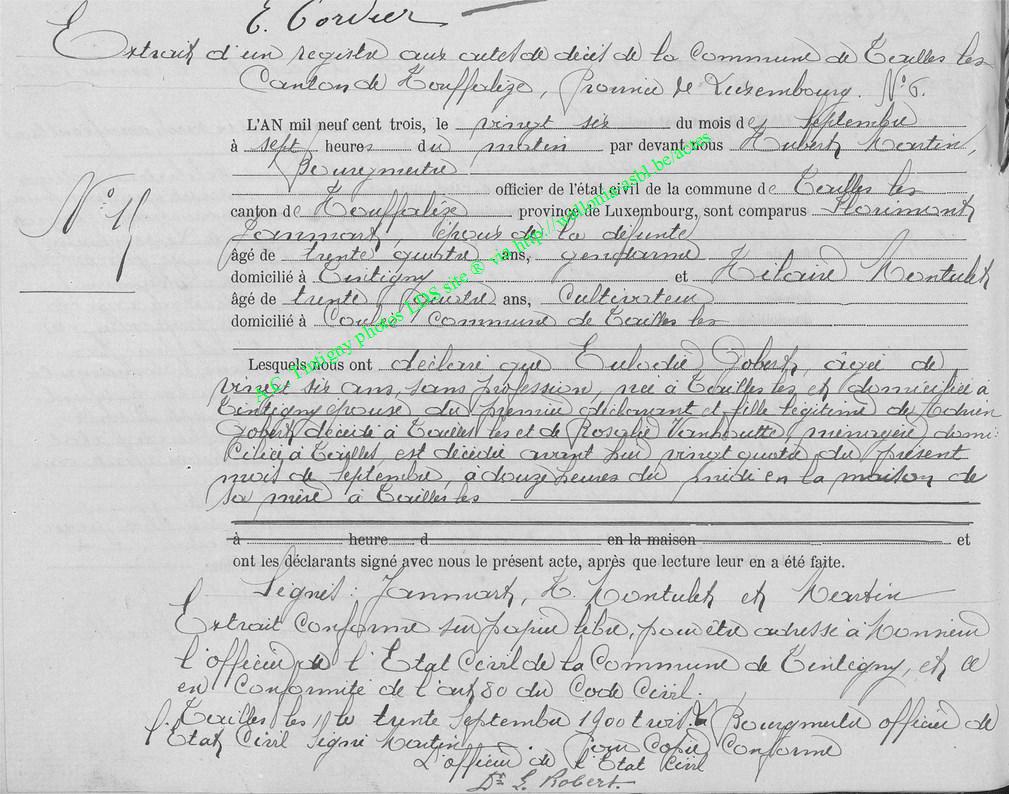 E. Cordier
Extrait d'un registre aux actes de décès de la Commune de Tailles les
Canton de Houffalize, Province de Luxembourg. N° 6.
N° 11
L'AN mil neuf cent trois, le vingt six du mois de septembre
à sept heures du matin par devant nous Hubert Martin,
Bourgmestre
officier de l'état civil de la commune de Tailles les
canton de Houffalize province de Luxembourg, sont comparus Florimont
Jammart, époux de la défunte
âgé de trente quatre ans, gendarme
domicilié à Tintigny et Hilaire Montulet
âgé de trente quatre ans, Cultivateur
domicilié à Commune de Tailles les
Lesquels nous ont déclaré que Eulodie Gobert, âgée de
vingt six ans, sans profession, née à Tailles les et domiciliée à
Tintigny épouse du premier déclarant et fille légitime de Adrien
Gobert décédé à Tailles les et de Rosalie Vanhoutte, ménagère, domi-
ciliée à Tailles, est décédée avant hier vingt quatre du présent
mois de septembre, à douze heures du midi en la maison de
sa mère à Tailles les
à heure d en la maison et
ont les déclarants signé avec nous le présent acte, après que lecture leur en a été faite.
Signés : Jammart, H. Montulet et Martin
Extrait conforme sur papier libre, pour être adressé à Monsieur
l'officier de l'Etat Civil de la Commune de Tintigny, et ce
en Conformité de l'art 80 du Code Civil.
Tailles les le trente Septembre 1900 trois. Le Bourgmestre officier de
l'Etat Civil Signé Martin Pour Copie Conforme
L'officier de l'Etat Civil
Dr E. Robert.
A.C. Tintigny photos LDS site ® via http://wallonia.asbl.be/actes